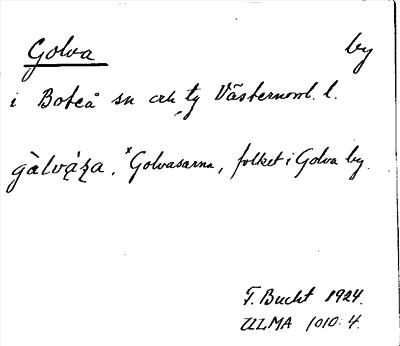 Golva by
i Boteå sn och tg Västernorrl. l.
gàlva̱ʒa, ˣGolvasarna, folket i Golva by.
T. Bucht 1924.
ULMA 1010:4.